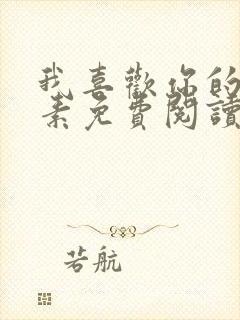 我喜歡你的
素免費閱讀
若航